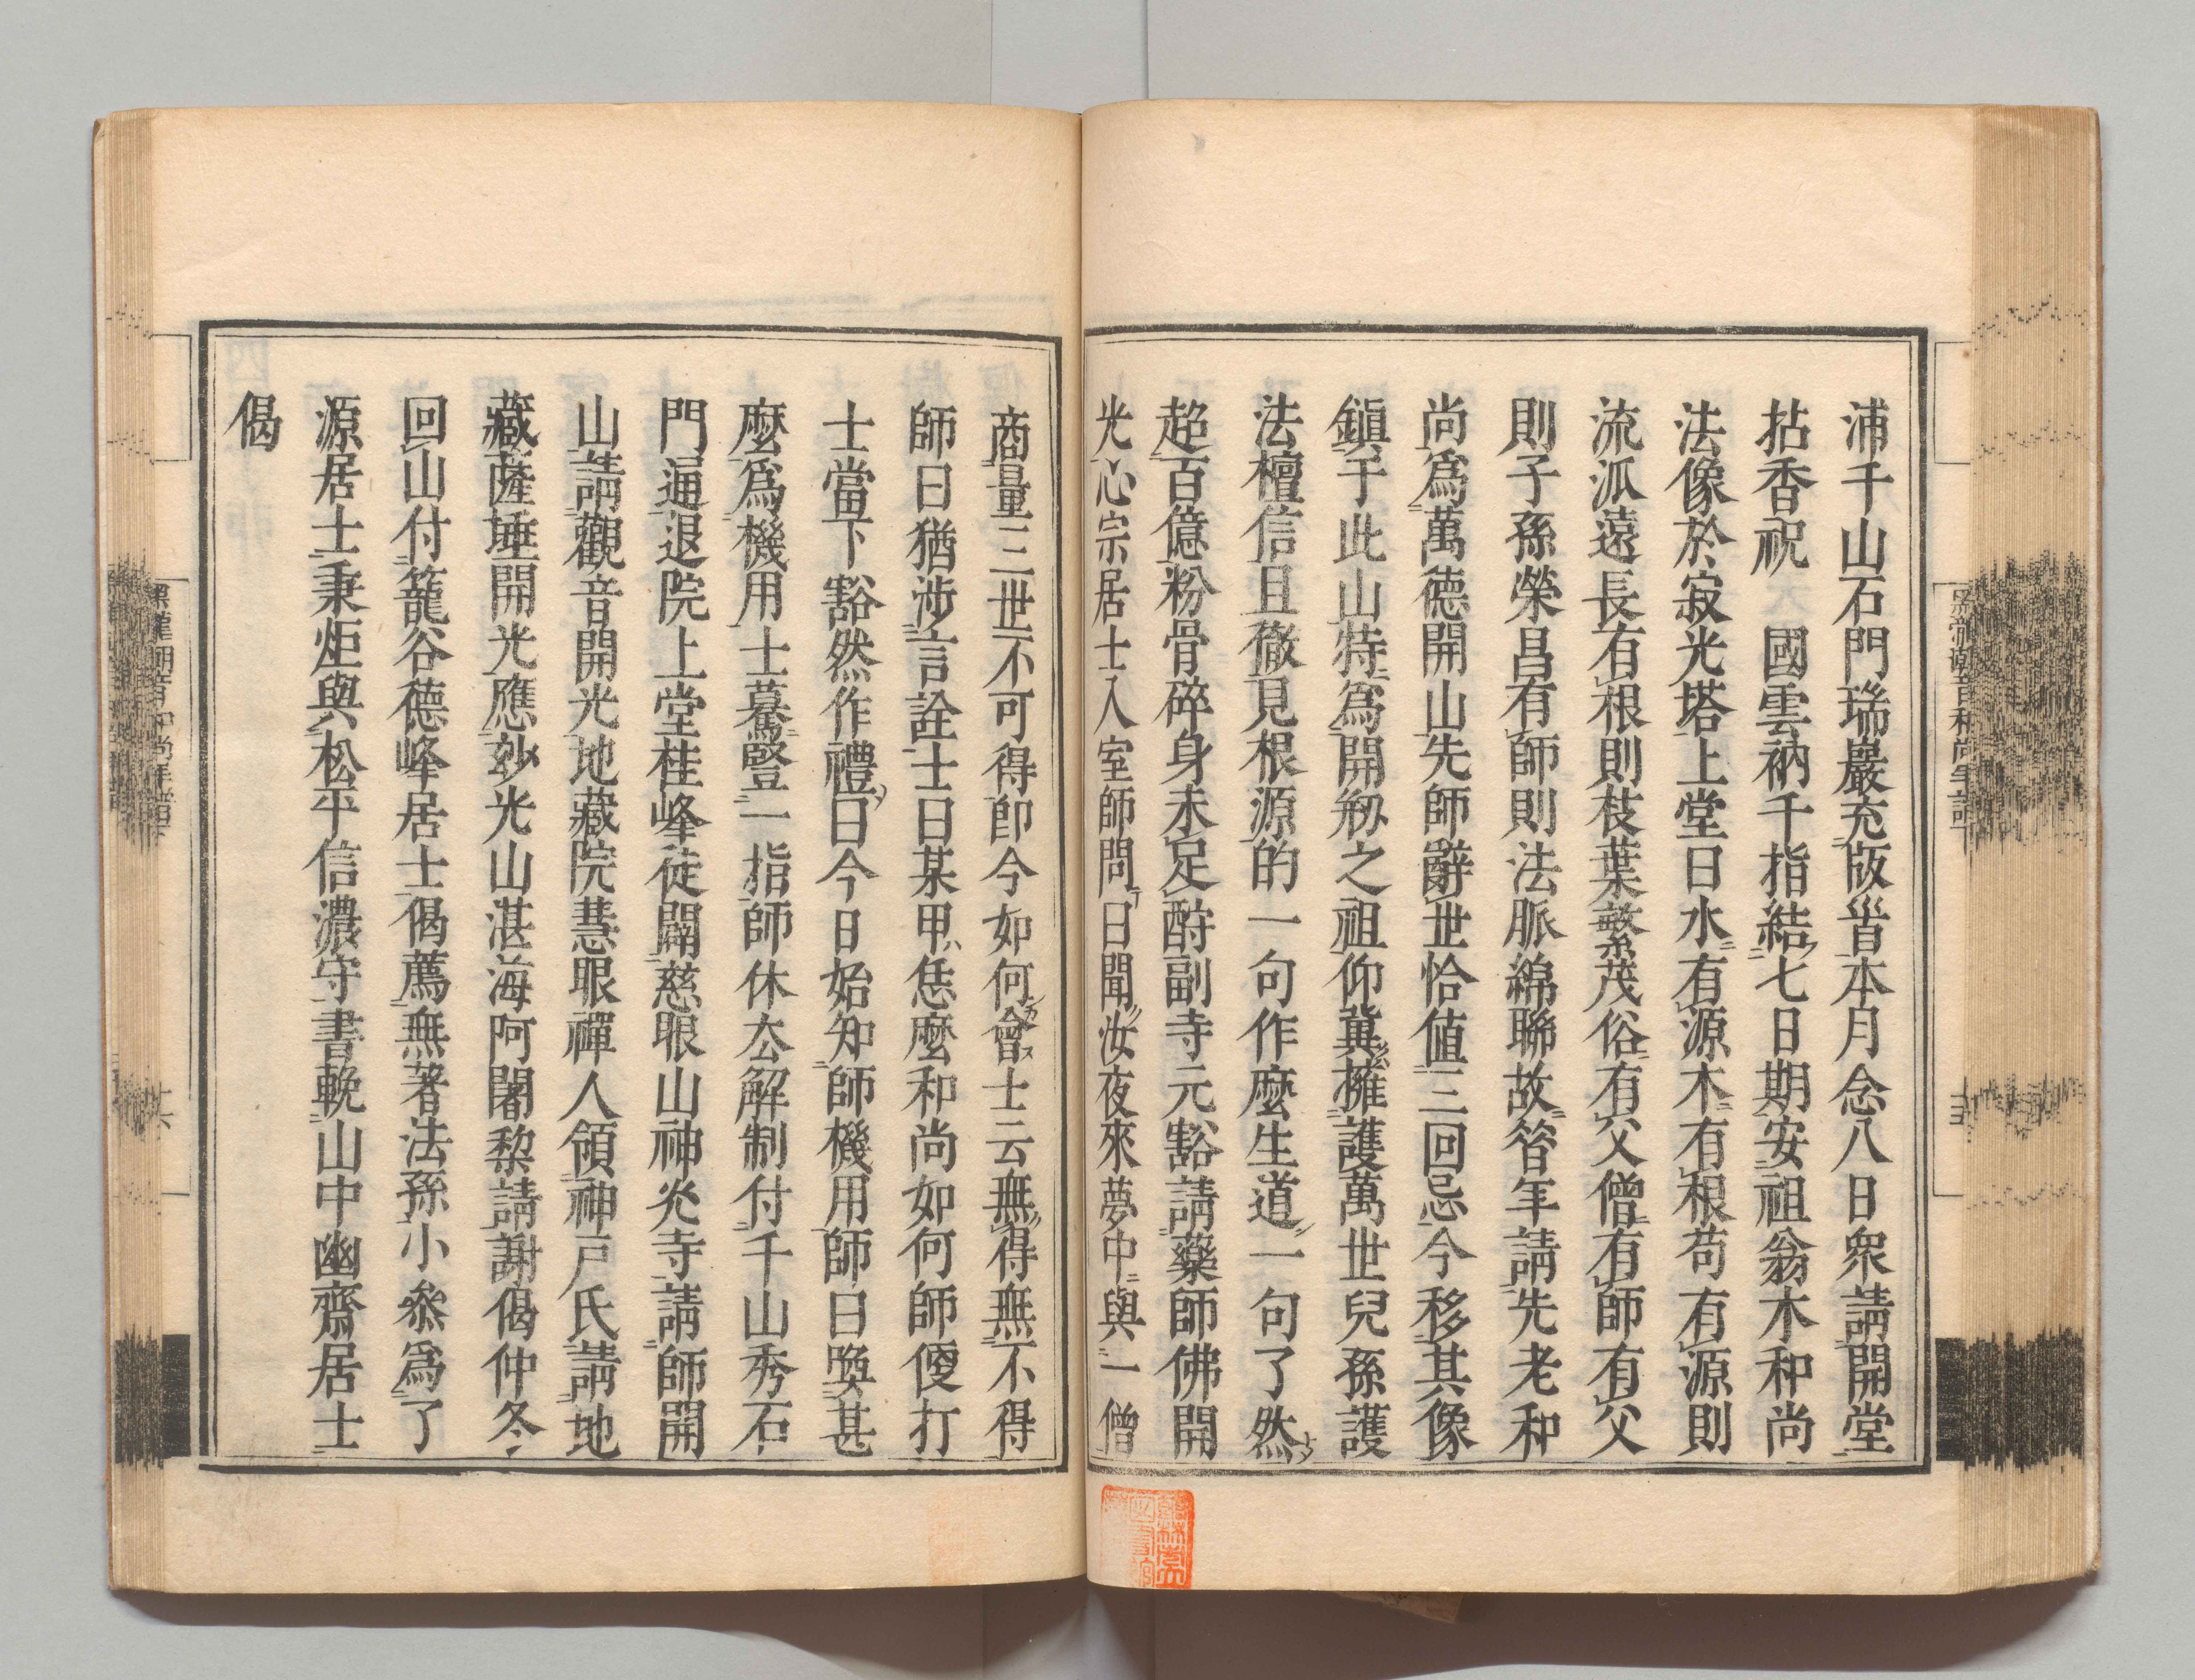 浦千山石門瑞巖充版首本月念八日衆請開堂
拈香祝 國雲衲千指結七日期安祖翁木和尚
法像於寂光塔上堂曰水有源木有根苟有源則
流派遠長有根則枝葉繁茂俗有父僧有師有父
則子孫榮昌有師則法脈綿聯故答年請先老和
尚爲萬德開山先師辭世恰値三回忌今移其像
鎭于此山特爲開剏之祖仰冀擁護萬世兒孫護
法檀信且徹見根源的一句作麼生道一句了然
超百億粉骨碎身未足酧副寺元豁請藥師佛開
光心宗居士入室師問曰聞汝夜來夢中與一僧
商量三世不可得卽今如何會士云無得無不得
師曰猶涉言詮士曰某甲恁麼和尚如何師便打
士當下豁然作禮曰今日始知師機用師曰喚甚
麼爲機用士驀豎一指師休厺解制付千山秀石
門逼退院上堂桂峰徒闢慈眼山神光寺請師開
山請觀音開光地藏院慧眼禪人領神戸氏請地
藏薩埵開光應妙光山湛海阿闍黎請謝偈仲冬
回山付籠谷德峰居士偈薦無著法孫小叅爲了
源居士秉炬與松平信濃守書輓山中幽齋居士
偈